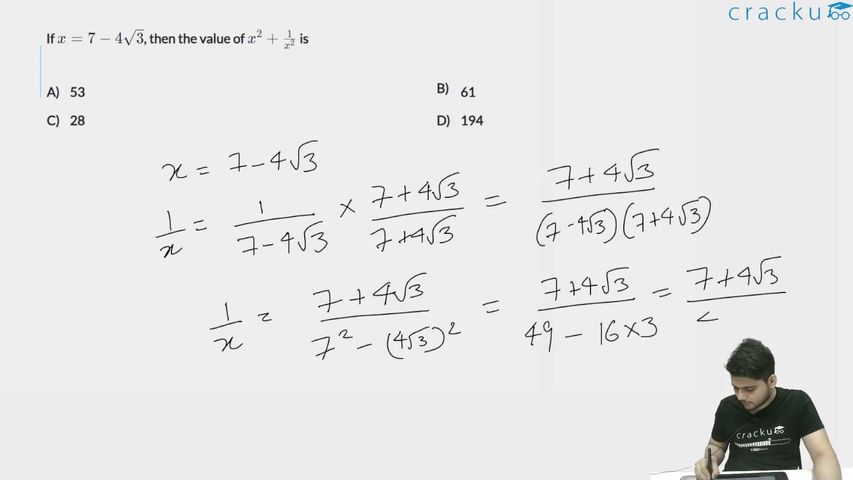 cracku
If x = 7 − 4√3, then the value of x² + 1/x² is
A) 53
B) 61
C) 28
D) 194
x = 7 − 4√3
1/x = 1/(7 − 4√3) × (7 + 4√3)/(7 + 4√3) = (7 + 4√3)/((7 − 4√3)(7 + 4√3))
1/x = (7 + 4√3)/(7² − (4√3)²) = (7 + 4√3)/(49 − 16×3) = (7 + 4√3)/
cracku